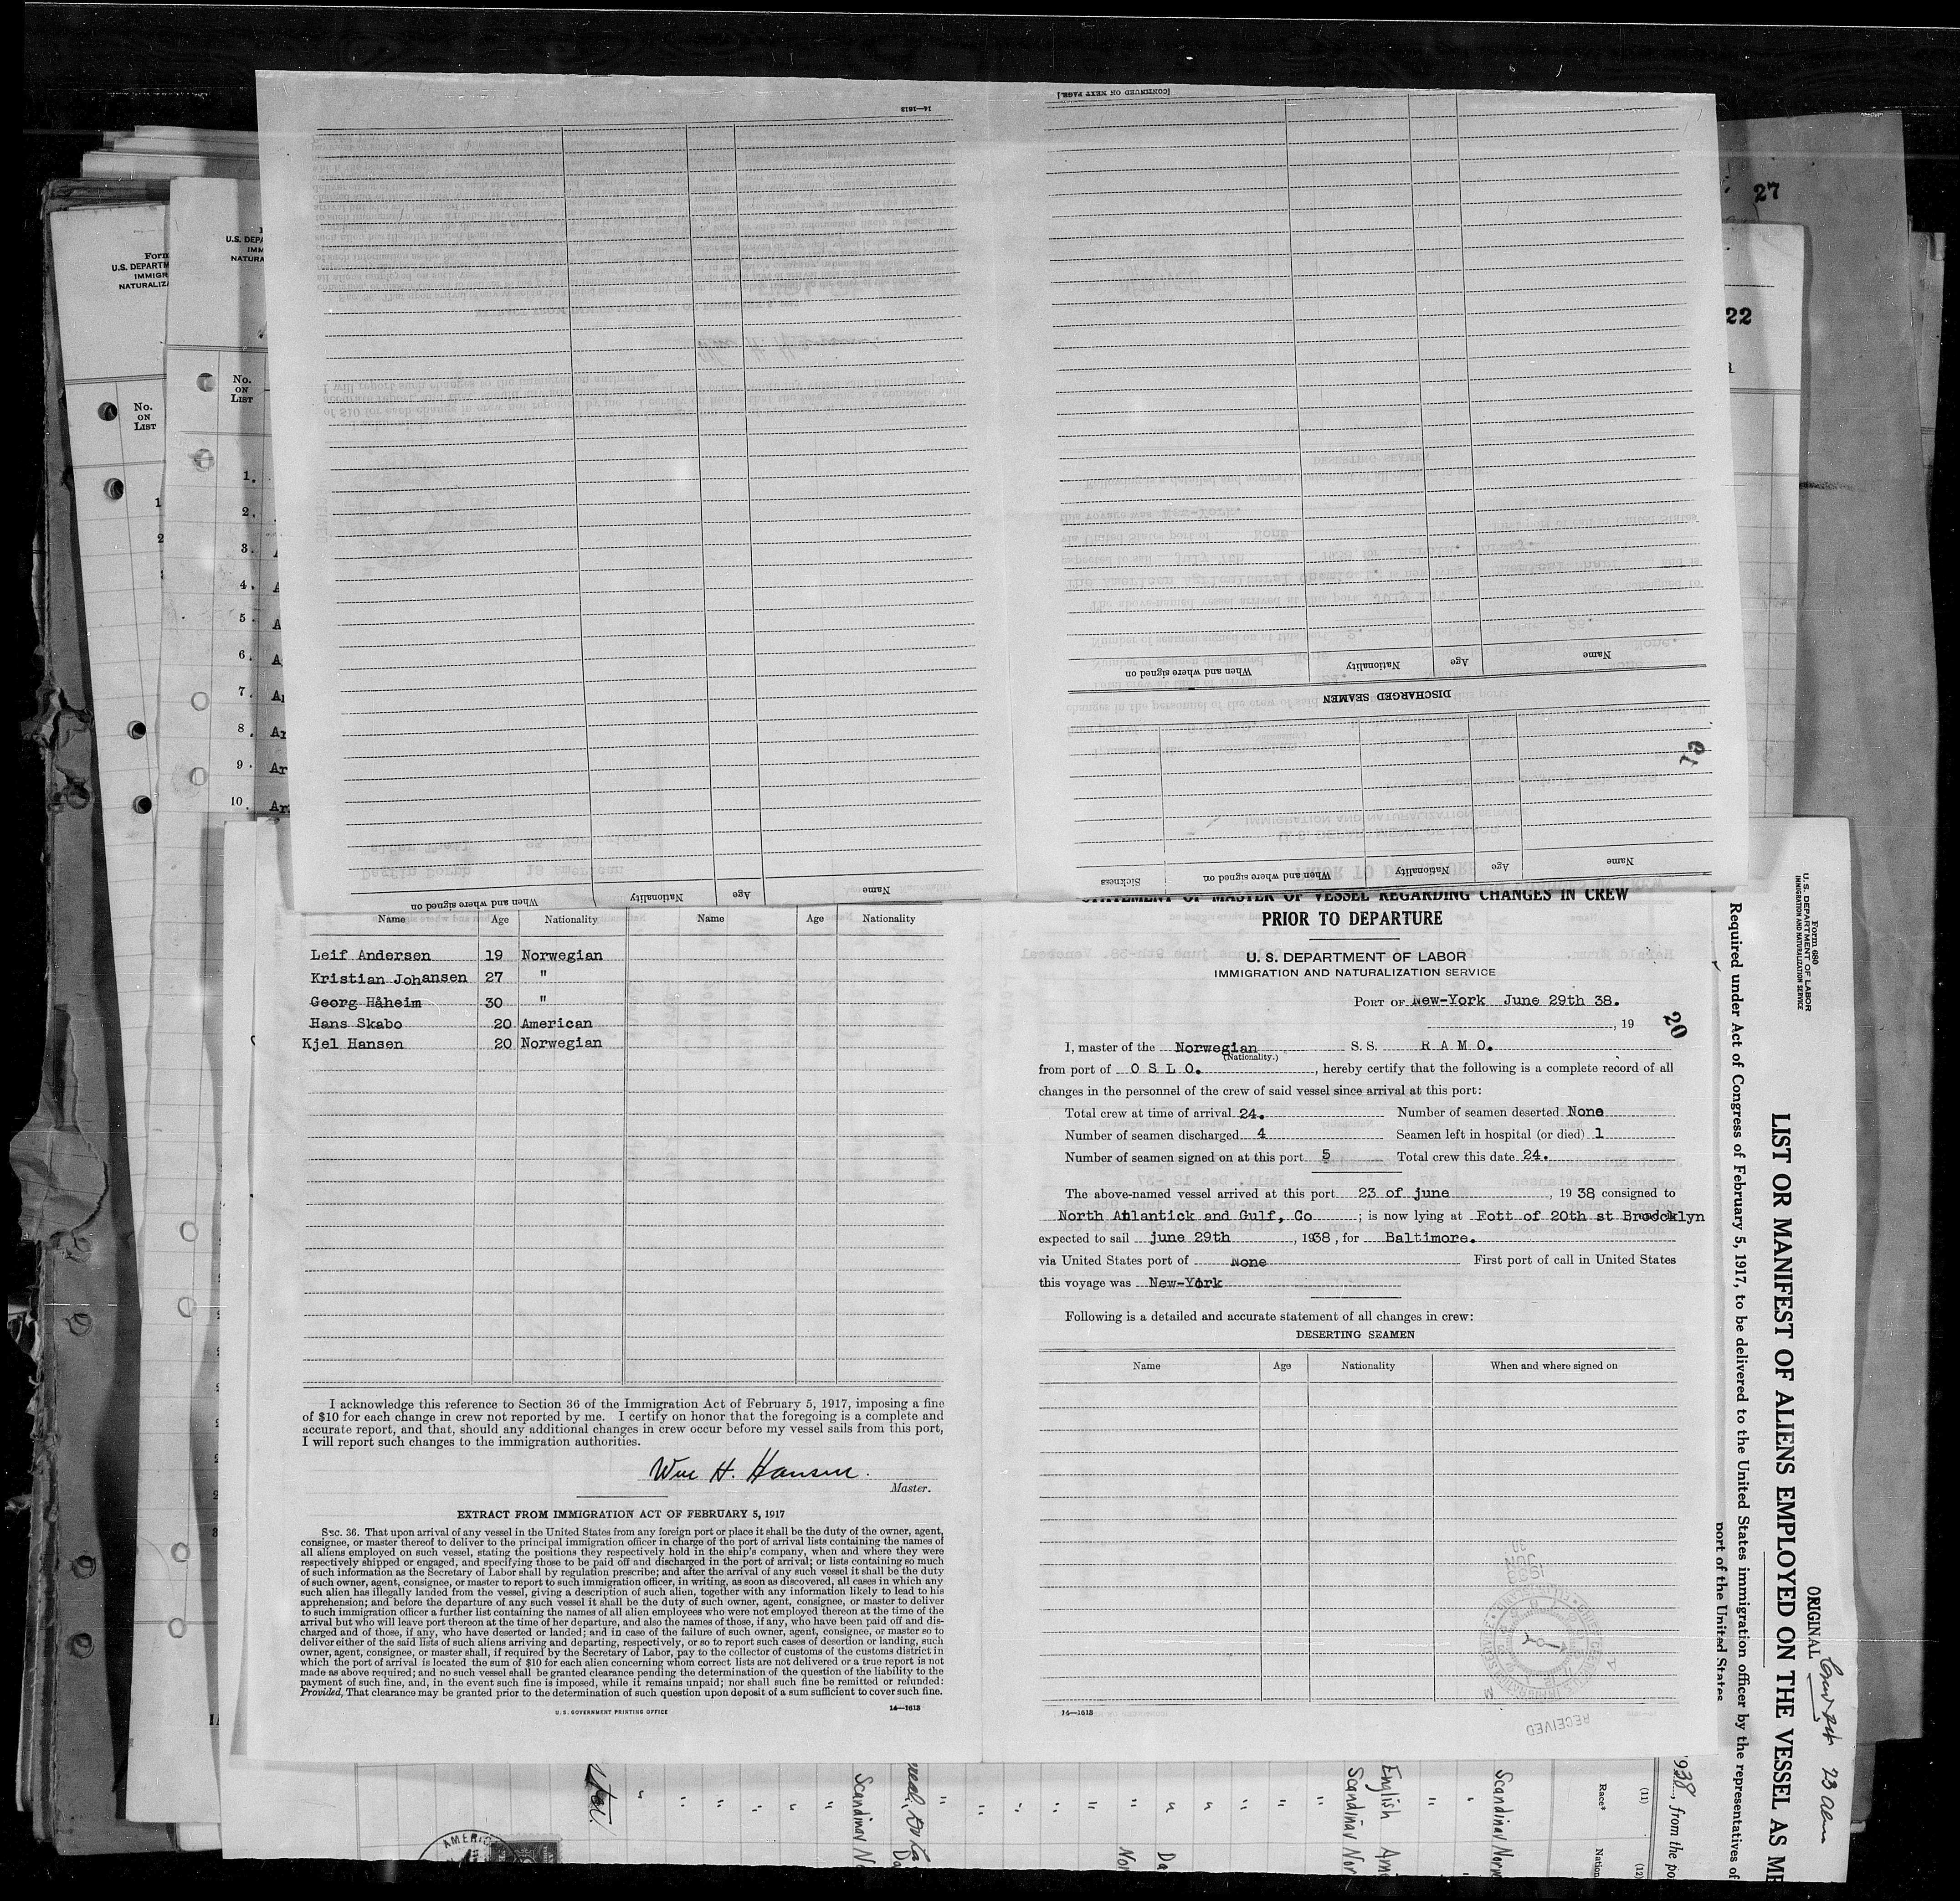 14—1613
[CONTINUED ON NEXT PAGE.]
27
22
Form
U.S. DEPARTM
IMMIGR
NATURALIZA
U.S. DEPA
IMM
NATURA
No.
ON
LIST
No.
ON
LIST
1
2
1.
2.
3.
4.
5.
6.
7.
8.
9.
10.
A
A
A
Ar
Ar
Ar
Ar
When and where signed on
Nationality
Age
Name
DISCHARGED SEAMEN
Sickness
When and where signed on
Nationality
Age
Name
When and where signed on
Nationality
Age
Name
Name Age Nationality Name Age Nationality
Leif Andersen 19 Norwegian
Kristian Johansen 27 "
Georg Håheim 30 "
Hans Skabo 20 American
Kjel Hansen 20 Norwegian
I acknowledge this reference to Section 36 of the Immigration Act of February 5, 1917, imposing a fine
of $10 for each change in crew not reported by me. I certify on honor that the foregoing is a complete and
accurate report, and that, should any additional changes in crew occur before my vessel sails from this port,
I will report such changes to the immigration authorities.
Wm H. Hansen.
Master.
EXTRACT FROM IMMIGRATION ACT OF FEBRUARY 5, 1917
SEC. 36. That upon arrival of any vessel in the United States from any foreign port or place it shall be the duty of the owner, agent,
consignee, or master thereof to deliver to the principal immigration officer in charge of the port of arrival lists containing the names of
all aliens employed on such vessel, stating the positions they respectively hold in the ship's company, when and where they were
respectively shipped or engaged, and specifying those to be paid off and discharged in the port of arrival; or lists containing so much
of such information as the Secretary of Labor shall by regulation prescribe; and after the arrival of any such vessel it shall be the duty
of such owner, agent, consignee, or master to report to such immigration officer, in writing, as soon as discovered, all cases in which any
such alien has illegally landed from the vessel, giving a description of such alien, together with any information likely to lead to his
apprehension; and before the departure of any such vessel it shall be the duty of such owner, agent, consignee, or master to deliver
to such immigration officer a further list containing the names of all alien employees who were not employed thereon at the time of the
arrival but who will leave port thereon at the time of her departure, and also the names of those, if any, who have been paid off and dis-
charged and of those, if any, who have deserted or landed; and in case of the failure of such owner, agent, consignee, or master so to
deliver either of the said lists of such aliens arriving and departing, respectively, or so to report such cases of desertion or landing, such
owner, agent, consignee, or master shall, if required by the Secretary of Labor, pay to the collector of customs of the customs district in
which the port of arrival is located the sum of $10 for each alien concerning whom correct lists are not delivered or a true report is not
made as above required; and no such vessel shall be granted clearance pending the determination of the question of the liability to the
payment of such fine, and, in the event such fine is imposed, while it remains unpaid; nor shall such fine be remitted or refunded:
Provided, That clearance may be granted prior to the determination of such question upon deposit of a sum sufficient to cover such fine.
U.S. GOVERNMENT PRINTING OFFICE
14—1613
STATEMENT OF MASTER OF VESSEL REGARDING CHANGES IN CREW
PRIOR TO DEPARTURE
U. S. DEPARTMENT OF LABOR
IMMIGRATION AND NATURALIZATION SERVICE
PORT OF New-York June 29th 38.
, 19
20
I, master of the Norwegian S. S. R A M O.
(Nationality.)
from port of O S L O. , hereby certify that the following is a complete record of all
changes in the personnel of the crew of said vessel since arrival at this port:
Total crew at time of arrival 24. Number of seamen deserted None
Number of seamen discharged 4 Seamen left in hospital (or died) 1
Number of seamen signed on at this port 5 Total crew this date 24.
The above-named vessel arrived at this port 23 of june , 1938 consigned to
North Atlantick and Gulf, Co ; is now lying at Fott of 20th st Broocklyn
expected to sail june 29th , 1938, for Baltimore.
via United States port of None First port of call in United States
this voyage was New-York
Following is a detailed and accurate statement of all changes in crew:
DESERTING SEAMEN
Name Age Nationality When and where signed on
14—1613
RECEIVED
1938
JUN
30
Form 680
U. S. DEPARTMENT OF LABOR
IMMIGRATION AND NATURALIZATION SERVICE
ORIGINAL
LIST OR MANIFEST OF ALIENS EMPLOYED ON THE VESSEL AS ME
Required under Act of Congress of February 5, 1917, to be delivered to the United States immigration officer by the representatives of
port of the United States
1938, from the po
(11)
Race*
(12)
Nation
Scandinav Norw
English Ame
Scandinav Nor
Scandinav No
AMERIC